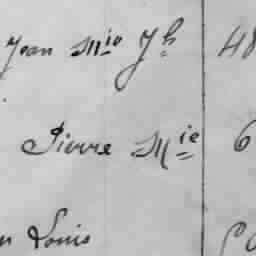 Jean Mie Jh 48
Pierre Mie 6
Louis